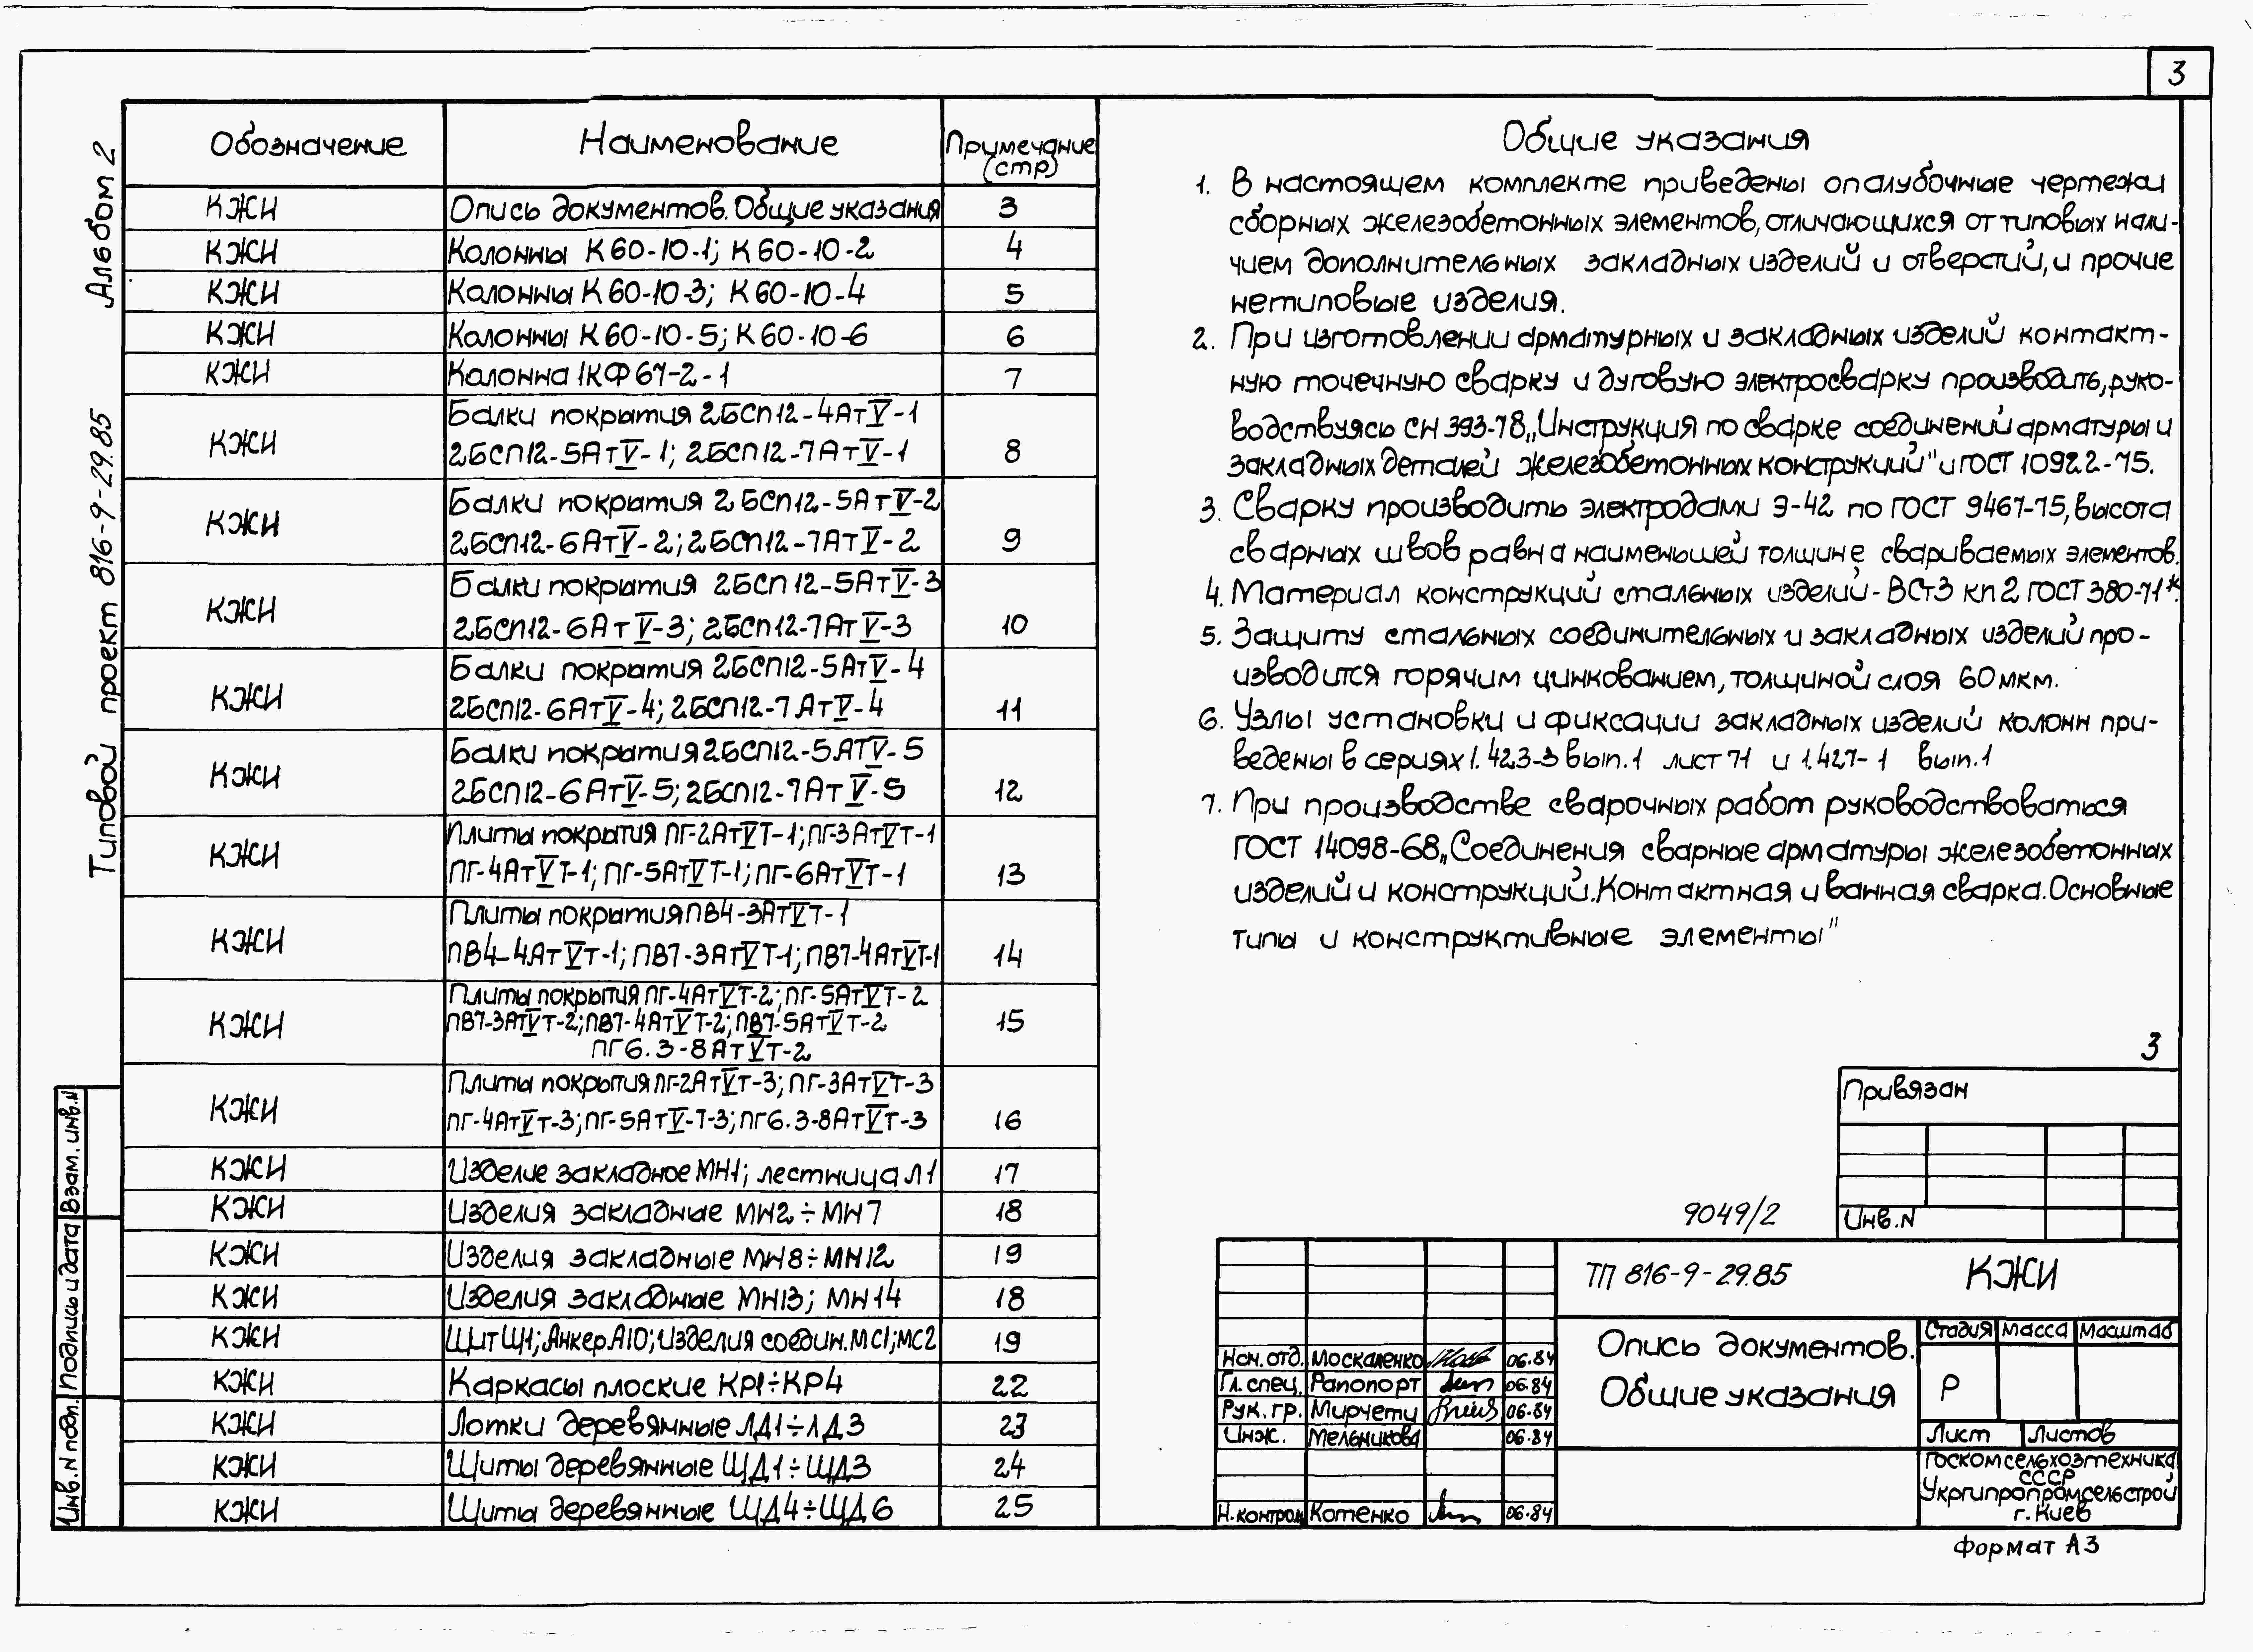 3
Альбом 2
Типовой проект 816-9-29.85
Обозначение Наименование Примечание (стр)
КЖИ Опись документов. Общие указания 3
КЖИ Колонны К60-10-1; К60-10-2 4
КЖИ Колонны К60-10-3; К60-10-4 5
КЖИ Колонны К60-10-5; К60-10-6 6
КЖИ Колонна 1КФ67-2-1 7
Балки покрытия 2БСП12-4АтV-1
КЖИ 2БСП12-5АтV-1; 2БСП12-7АтV-1 8
Балки покрытия 2БСП12-5АтV-2
КЖИ 2БСП12-6АтV-2; 2БСП12-7АтV-2 9
Балки покрытия 2БСП12-5АтV-3
КЖИ 2БСП12-6АтV-3; 2БСП12-7АтV-3 10
Балки покрытия 2БСП12-5АтV-4
КЖИ 2БСП12-6АтV-4; 2БСП12-7АтV-4 11
Балки покрытия 2БСП12-5АТV-5
КЖИ 2БСП12-6АтV-5; 2БСП12-7АтV-5 12
Плиты покрытия ПГ-2АтVТ-1; ПГ-3АтVт-1
КЖИ ПГ-4АтVТ-1; ПГ-5АтVТ-1; ПГ-6АтVТ-1 13
Плиты покрытия ПВ4-3АтVт-1
КЖИ ПВ4-4АтVт-1; ПВ7-3АтVТ-1; ПВ7-4АтVТ-1 14
Плиты покрытия ПГ-4АтVТ-2; ПГ-5АтVТ-2
КЖИ ПВ7-3АтVт-2; ПВ7-4АтVт-2; ПВ7-5АтVт-2 15
ПГ6.3-8АтVт-2
Плиты покрытия ПГ-2АтVт-3; ПГ-3АтVт-3
КЖИ ПГ-4АтVт-3; ПГ-5АтV-Т-3; ПГ6.3-8АтVт-3 16
КЖИ Изделие закладное МН1; лестница Л1 17
КЖИ Изделия закладные МН2÷МН7 18
КЖИ Изделия закладные МН8÷МН12 19
КЖИ Изделия закладные МН13; МН14 18
КЖИ Щит Щ1; Анкер А10; Изделия соедин. МС1; МС2 19
КЖИ Каркасы плоские КР1÷КР4 22
КЖИ Лотки деревянные ЛД1÷ЛД3 23
КЖИ Щиты деревянные ЩД1÷ЩД3 24
КЖИ Щиты деревянные ЩД4÷ЩД6 25
Взам. инв.N
Подпись и дата
Инв. N подл.
Общие указания
1. В настоящем комплекте приведены опалубочные чертежи
сборных железобетонных элементов, отличающихся от типовых нали-
чием дополнительных закладных изделий и отверстий, и прочие
нетиповые изделия.
2. При изготовлении арматурных и закладных изделий контакт-
ную точечную сварку и дуговую электросварку производить, руко-
водствуясь СН 393-78 „Инструкция по сварке соединений арматуры и
закладных деталей железобетонных конструкций" и ГОСТ 10922-75.
3. Сварку производить электродами Э-42 по ГОСТ 9467-75, высота
сварных швов равна наименьшей толщине свариваемых элементов.
4. Материал конструкций стальных изделий - ВСт3 кп 2 ГОСТ 380-71*.
5. Защиту стальных соединительных и закладных изделий про-
изводится горячим цинкованием, толщиной слоя 60 мкм.
6. Узлы установки и фиксации закладных изделий колонн при-
ведены в сериях 1.423-3 вып.1 лист 71 и 1.427-1 вып.1
7. При производстве сварочных работ руководствоваться
ГОСТ 14098-68 „Соединения сварные арматуры железобетонных
изделий и конструкций. Контактная и ванная сварка. Основные
типы и конструктивные элементы"
3
Привязан
Инв.N
9049/2
ТП 816-9-29.85 КЖИ
Опись документов.
Общие указания
Стадия Масса Масштаб
Р
Лист Листов
Госкомсельхозтехника
СССР
Укргипропромсельстрой
г. Киев
Нач. отд. Москаленко 06.84
Гл. спец. Рапопорт 06.84
Рук. гр. Мирчети 06.84
Инж. Мельникова 06.84
Н. контрол Котенко 06.84
Формат А3